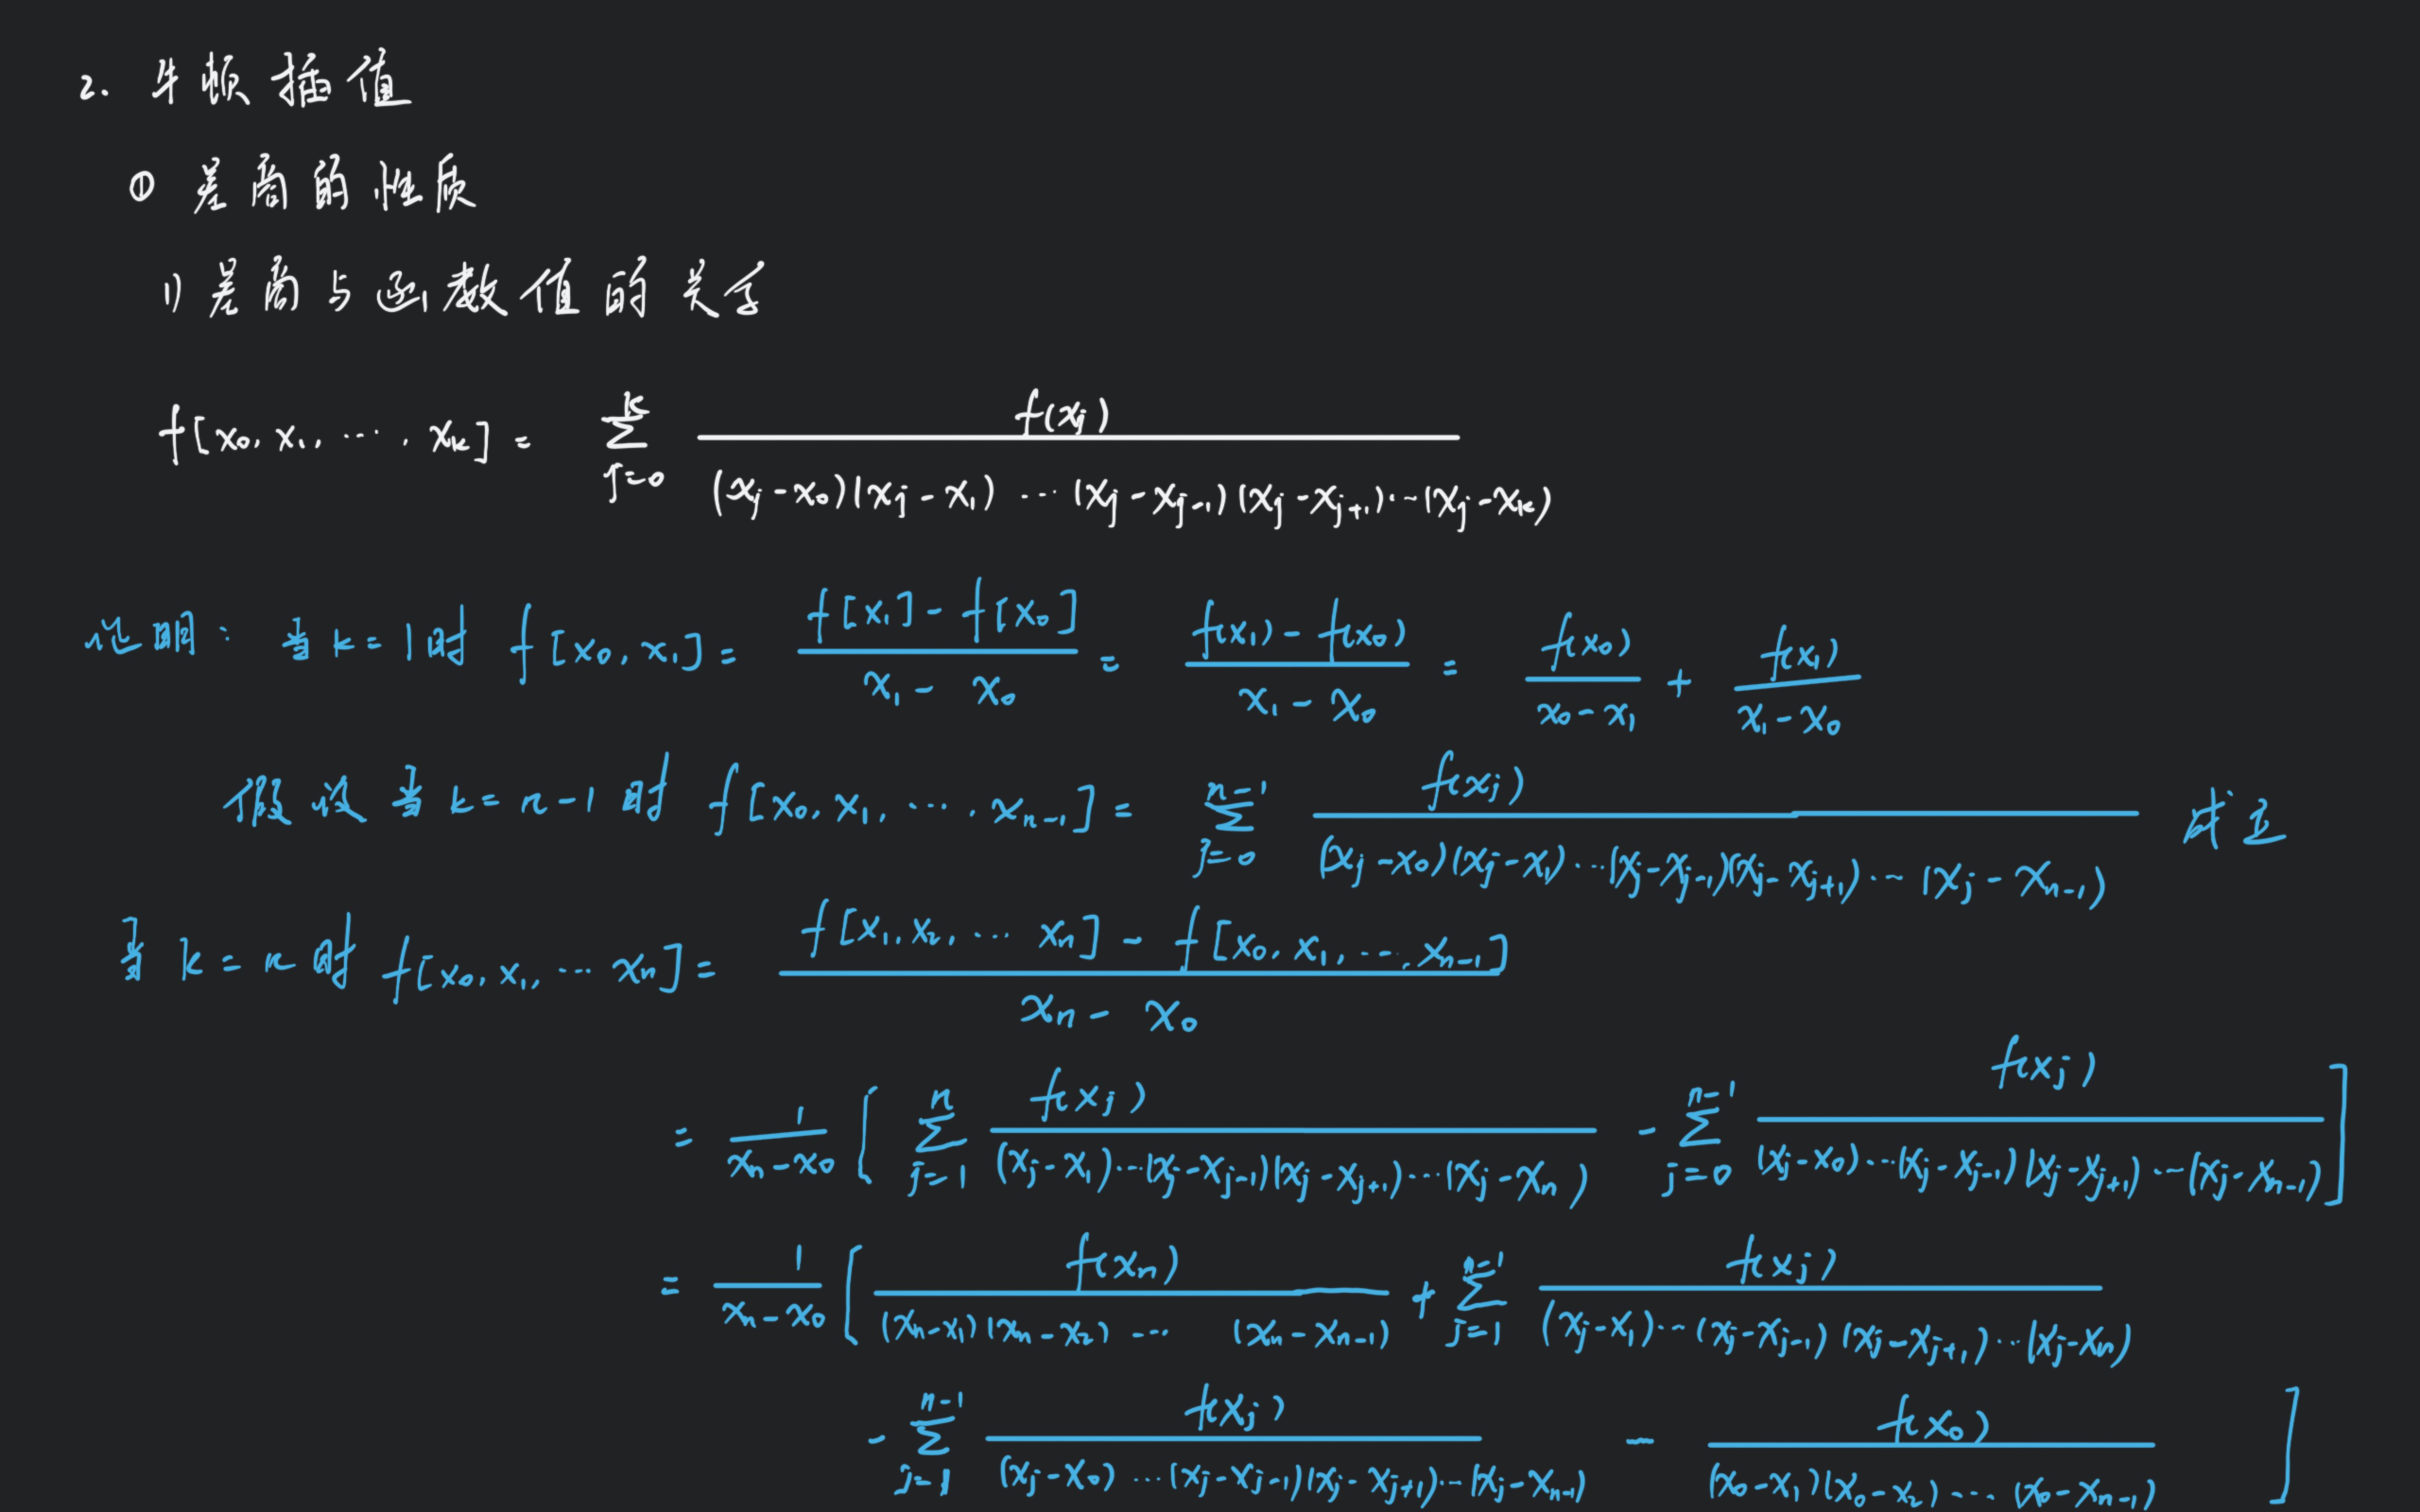 2. 牛顿插值
① 差商的性质
1) 差商与函数值的关系
f[x₀, x₁, ⋯, xₖ] = \sum_{j=0}^{k} \frac{f(x_j)}{(x_j-x_0)(x_j-x_1)⋯(x_j-x_{j-1})(x_j-x_{j+1})⋯(x_j-x_k)}
证明: 当k=1时 f[x_0, x_1] = \frac{f[x_1]-f[x_0]}{x_1-x_0} = \frac{f(x_1)-f(x_0)}{x_1-x_0} = \frac{f(x_0)}{x_0-x_1} + \frac{f(x_1)}{x_1-x_0}
假设当k=n-1时 f[x_0, x_1, ⋯, x_{n-1}] = \sum_{j=0}^{n-1} \frac{f(x_j)}{(x_j-x_0)(x_j-x_1)⋯(x_j-x_{j-1})(x_j-x_{j+1})⋯(x_j-x_{n-1})} 成立
当k=n时 f[x_0, x_1, ⋯ x_n] = \frac{f[x_1, x_2, ⋯ x_n]-f[x_0, x_1, ⋯, x_{n-1}]}{x_n-x_0}
= \frac{1}{x_n-x_0} [ \sum_{j=1}^{n} \frac{f(x_j)}{(x_j-x_1)⋯(x_j-x_{j-1})(x_j-x_{j+1})⋯(x_j-x_n)} - \sum_{j=0}^{n-1} \frac{f(x_j)}{(x_j-x_0)⋯(x_j-x_{j-1})(x_j-x_{j+1})⋯(x_j-x_{n-1})} ]
= \frac{1}{x_n-x_0} [ \frac{f(x_n)}{(x_n-x_1)(x_n-x_2)⋯(x_n-x_{n-1})} + \sum_{j=1}^{n-1} \frac{f(x_j)}{(x_j-x_1)⋯(x_j-x_{j-1})(x_j-x_{j+1})⋯(x_j-x_n)}
- \sum_{j=1}^{n-1} \frac{f(x_j)}{(x_j-x_0)⋯(x_j-x_{j-1})(x_j-x_{j+1})⋯(x_j-x_{n-1})} - \frac{f(x_0)}{(x_0-x_1)(x_0-x_2)⋯(x_0-x_{n-1})} ]